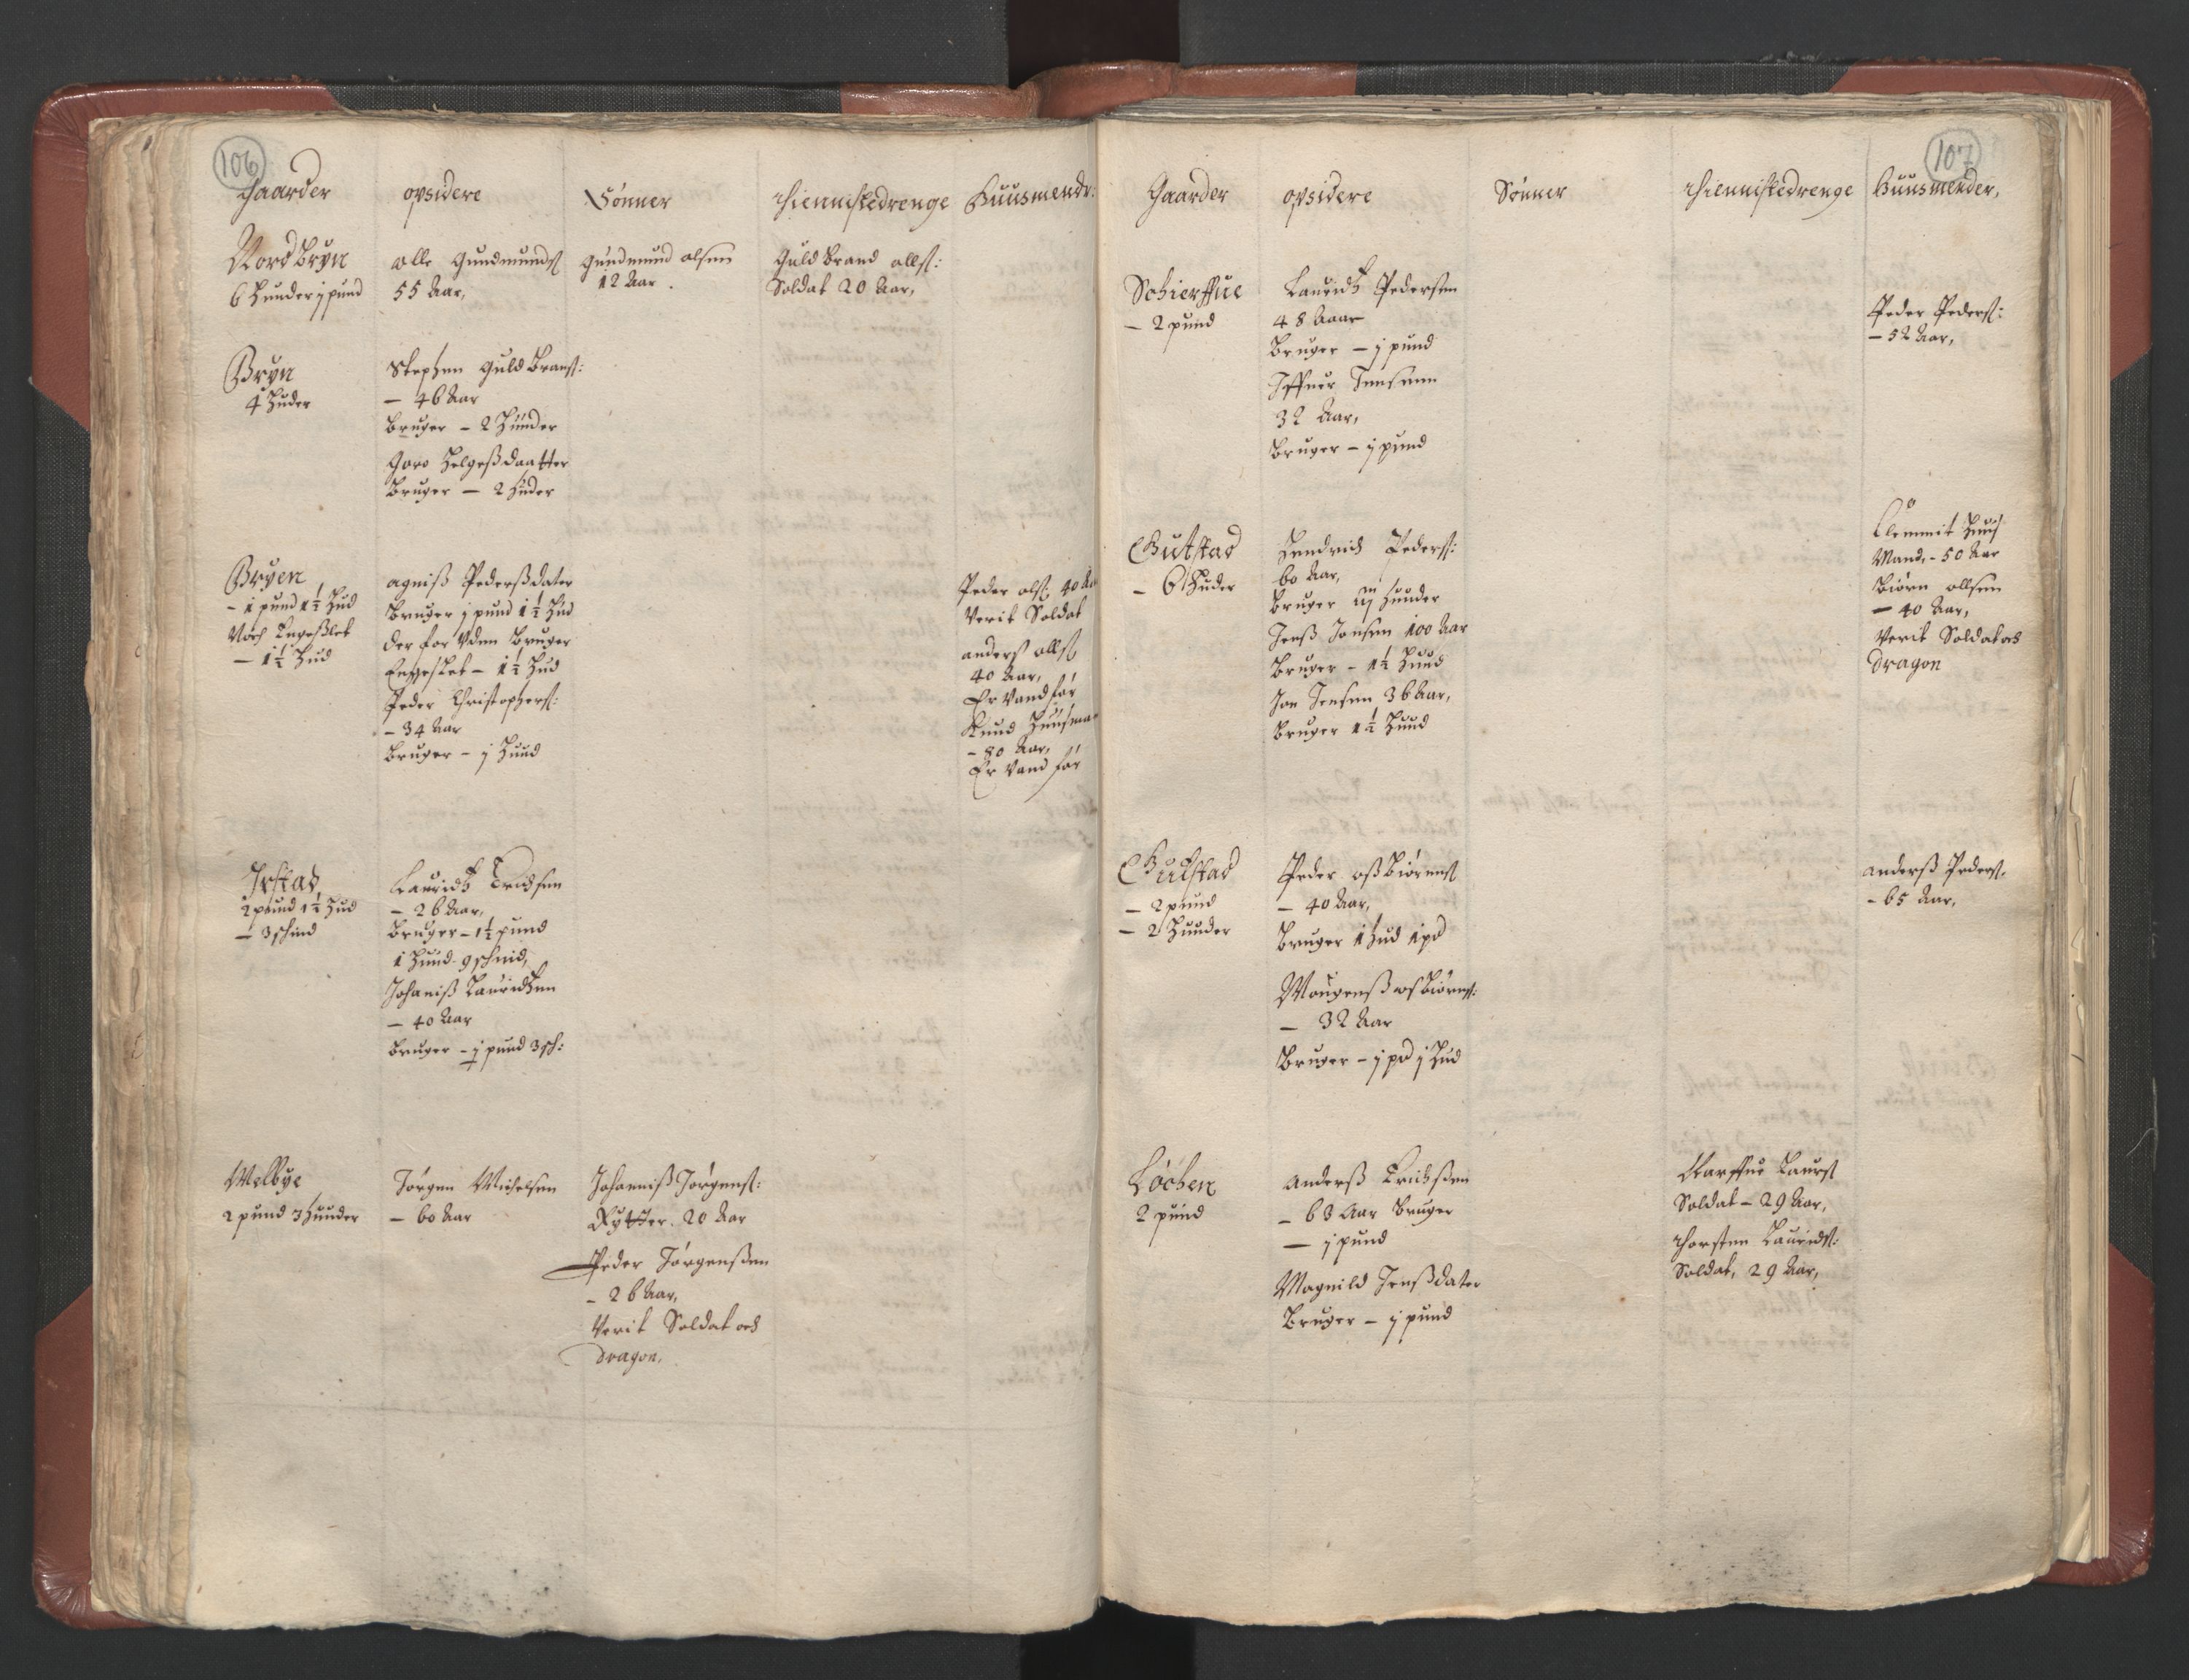 106
Gaarder
opsidere
Sönner
thiennistedrenge
Huusmendr:
Nordbryn
6 Hunder j pund
olle Gundmundß
55 Aar,
gundmund olsen
12 Aar.
Guldbrand ollß:
Soldat 20 Aar,
Bryn
4 Huder
Stephen Guldbranß:
– 46 Aar
bruger – 2 Hunder
Goro Helgeßdaatter
bruger – 2 Huder
Bryen
– 1 pund 1½ Hud
Noch Engeßlet
– 1½ Hud
agniß Pederßdater
bruger j pund 1½ Hud
der for Uden bruger
Engeslet – 1½ Hud
Peder Christophersß:
– 34 Aar
bruger – j Hund
Peder olß. 40 Aar
Verit Soldat
anderß ollß
40 Aar,
Er Vandför
Knud Huusman
– 80 Aar,
Er Vandför
Irstad
2 pund 1½ Hud
– 3 schind
Lauridtz Erichsen
– 26 Aar,
bruger – 1½ pund
1 Hund. 9 schind,
Johaniß Lauridtzen
– 40 Aar
bruger – j pund 3 sch:
Melbye
2 pund 3 Huuder
Jörgen Michelsen
– 60 Aar
Johanniß Jörgenß:
Rytter. 20 Aar
Peder Jörgenßen
– 26 Aar,
Verit Soldat och
dragon.
107
Gaarder
opsidere
Sönner
thiennistedrenge
Huusmender,
Schierffue
– 2 pund
Lauridtz Pedersen
48 Aaar
bruger – j pund
Iffuer Jensenn
32 Aar,
bruger – j pund
Peder Pederß:
– 52 Aar,
Gutstad
– 6 Huder
Hendrich Pederß:
60 Aar,
bruger iij Hunder
Jenß Jonsen 100 Aar
bruger – 1½ Hund
Jon Jensen 36 Aar,
bruger 1½ Hund
Clemmit Huus
Mand, – 50 Aar
biörn ollsen
– 40 Aar,
Verit Soldat och
dragon
Gutstad
– 2 pund
– 2 Huuder
Peder oßbiörenß
– 40 Aar,
bruger 1 Hud 1 pd
Mougenß osbiörenß:
– 32 Aar
bruger – j pd j Hud
anderß Pederß.
– 65 Aar,
Löchen
2 pund
anderß Erichßen
– 63 Aar bruger
– j pund
Magnild Jenßdater
bruger – j pund
Laurß
Soldat – 29 Aar,
thorsten Lauridß:
Soldat, 29 Aar,